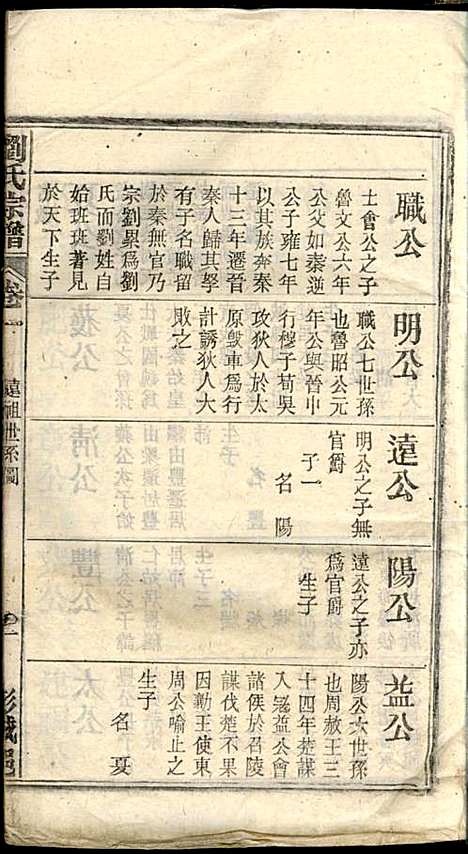 職公
士會公之子
魯文公六年
公父如秦逆
公子雍七年
以其族奔秦
十三年遷晉
秦人歸其孥
有子名職留
於秦無官乃
宗劉累為劉
氏而劉姓自
始班班著見
於天下生子
明公
職公七世孫
也魯昭公元
年公與晉中
行穆子荀吳
攻狄人於太
原毀車為行
計誘狄人大
敗之
遠公
明公之子無
官爵
子一
名陽
陽公
遠公之子亦
為官爵
生子
益公
陽公六世孫
也周赧王三
十四年楚謀
入寇益公會
諸侯於召陵
謀伐楚不果
因勸王使東
周公喻止之
生子
名夏
劉氏宗譜
卷一
遠祖世系圖
彭城